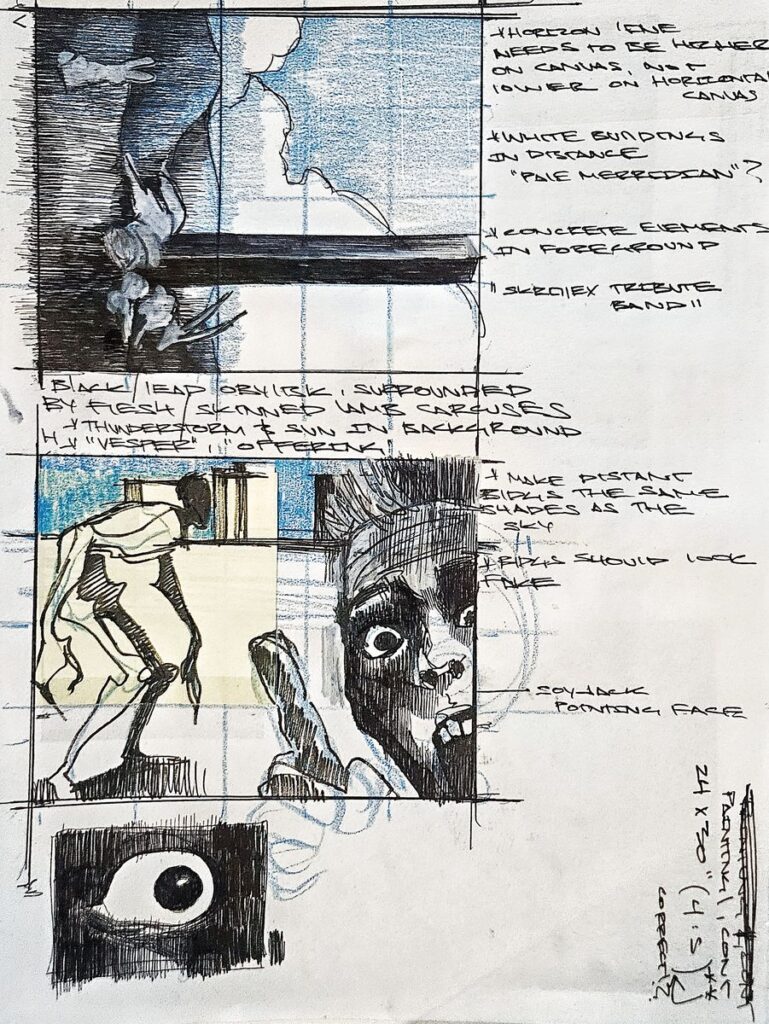 *HORIZON LINE
NEEDS TO BE HIGHER
ON CANVAS, NOT
LOWER ON HORIZONTAL
CANVAS
*WHITE BUILDINGS
IN DISTANCE
"PALE MERREDIAN"?
*CONCRETE ELEMENTS
IN FOREGROUND
"SKRILLEX TRIBUTE
BAND"
BLACK LEAD OBILISK, SURROUNDED
BY FLESH SKINNED LAMB CARCUSES
*THUNDERSTORM & SUN IN BACKGROUND
"VESPER", "OFFERING"
*MAKE DISTANT
BLDGS THE SAME
SHADES AS THE
SKY
*BLDGS SHOULD LOOK
FAKE
SOYJACK
POINTING FACE
PAINTING 1, CONC
24 x 30" (4:5) **
CORRECT!